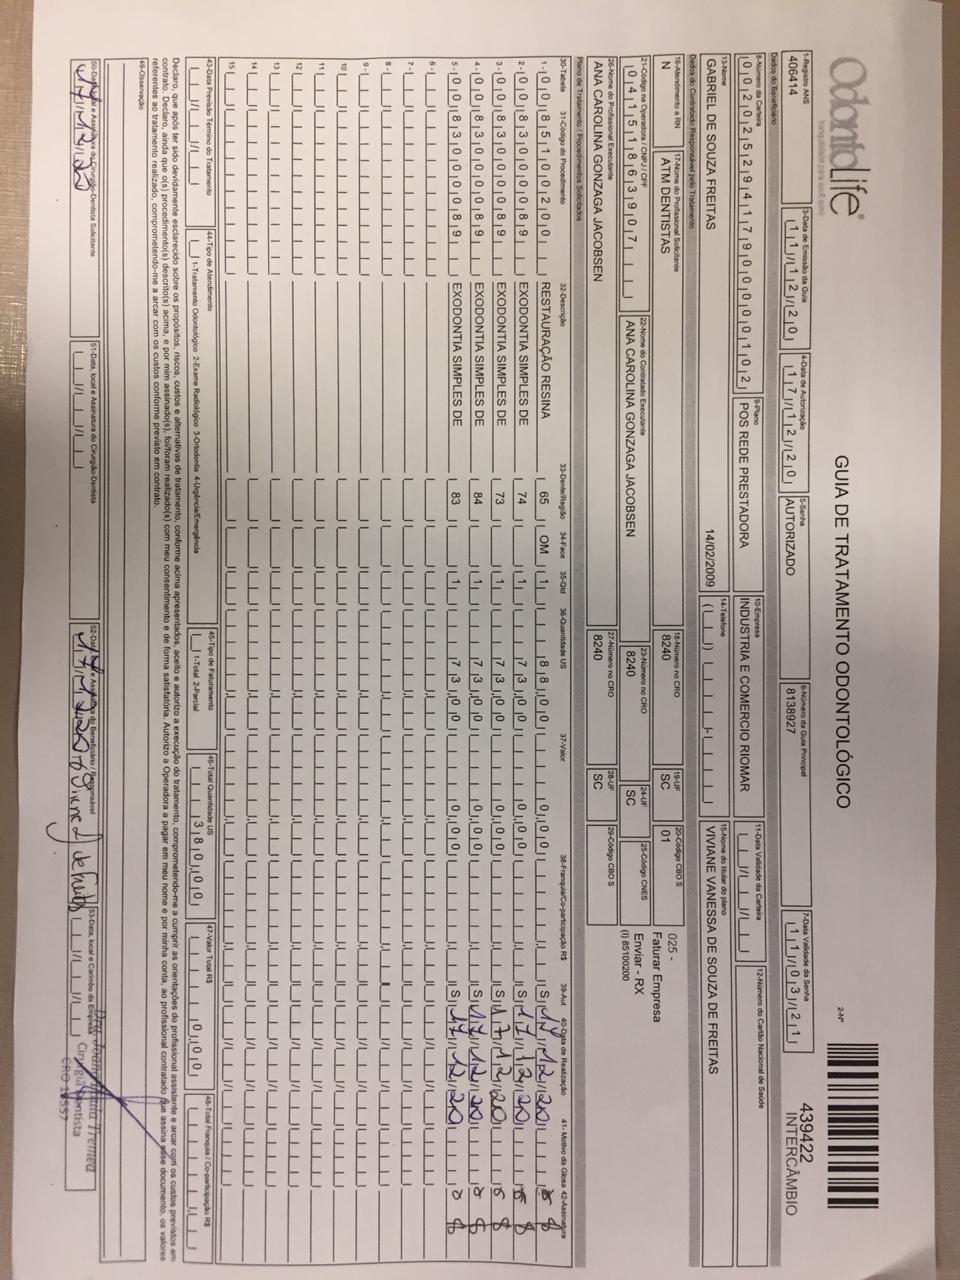 OdontoLife®
tranquilidade para você sorrir
GUIA DE TRATAMENTO ODONTOLÓGICO
2-Nº
439422
INTERCÂMBIO
1-Registro ANS
406414
3-Data de Emissão da Guia
11/12/20
4-Data de Autorização
17/12/20
5-Senha
AUTORIZADO
6-Número da Guia Principal
8138927
7-Data Validade da Senha
11/03/21
Dados do Beneficiário
8-Número da Carteira
00202529417900000102
9-Plano
POS REDE PRESTADORA
10-Empresa
INDUSTRIA E COMERCIO RIOMAR
11-Data Validade da Carteira
12-Número do Cartão Nacional de Saúde
13-Nome
GABRIEL DE SOUZA FREITAS
14/02/2009
14-Telefone
15-Nome do titular do plano
VIVIANE VANESSA DE SOUZA DE FREITAS
Dados do Contratado Responsável pelo Tratamento
16-Atendimento a RN
N
17-Nome do Profissional Solicitante
ATM DENTISTAS
18-Número no CRO
8240
19-UF
SC
20-Código CBO S
01
025 -
Faturar Empresa
21-Código na Operadora / CNPJ / CPF
04151863907
22-Nome do Contratado Executante
ANA CAROLINA GONZAGA JACOBSEN
23-Número no CRO
8240
24-UF
SC
25-Código CNES
Enviar - RX
(I) 85100200
26-Nome do Profissional Executante
ANA CAROLINA GONZAGA JACOBSEN
27-Número no CRO
8240
28-UF
SC
29-Código CBO S
Plano de Tratamento / Procedimentos Solicitados
30-Tabela 31-Código do Procedimento 32-Descrição 33-Dente/Região 34-Face 35-Qtd 36-Quantidade US 37-Valor 38-Franquia/Co-participação R$ 39-Aut 40-Data de Realização 41- Motivo da Glosa 42-Assinatura
1- 00 85100200 RESTAURAÇÃO RESINA 65 OM 1 88,00 0,00 S 17/12/20
2- 00 83000089 EXODONTIA SIMPLES DE 74 1 73,00 0,00 S 17/12/20
3- 00 83000089 EXODONTIA SIMPLES DE 73 1 73,00 0,00 S 17/12/20
4- 00 83000089 EXODONTIA SIMPLES DE 84 1 73,00 0,00 S 17/12/20
5- 00 83000089 EXODONTIA SIMPLES DE 83 1 73,00 0,00 S 17/12/20
6-
7-
8-
9-
10
11
12
13
14
15
43-Data Previsão Término do Tratamento
44-Tipo de Atendimento
1-Tratamento Odontológico 2-Exame Radiológico 3-Ortodontia 4-Urgência/Emergência
45-Tipo de Faturamento
1-Total 2-Parcial
46-Total Quantidade US
380,00
47-Valor Total R$
0,00
48-Total Franquia / Co-participação R$
Declaro, que após ter sido devidamente esclarecido sobre os propósitos, riscos, custos e alternativas de tratamento, conforme acima apresentados, aceito e autorizo a execução do tratamento, comprometendo-me a cumprir as orientações do profissional assistente e arcar com os custos previstos em
contrato. Declaro, ainda que o(s) procedimento(s) descrito(s) acima, e por mim assinado(s), foi/foram realizado(s) com meu consentimento e de forma satisfatória. Autorizo a Operadora a pagar em meu nome e por minha conta, ao profissional contratado que assina esse documento, os valores
referentes ao tratamento realizado, comprometendo-me a arcar com os custos conforme previsto em contrato.
49-Observação
50-Data, local e Assinatura do Cirurgião-Dentista Solicitante
17/12/20
51-Data, local e Assinatura do Cirurgião-Dentista
52-Data, local e Assinatura do Beneficiário / Responsável
17/12/20
53-Data, local e Carimbo da Empresa
Cirurgiã Dentista